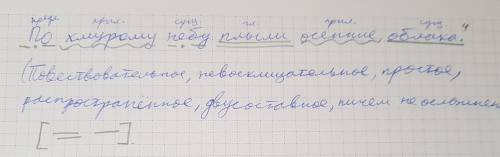 предл. прил. сущ. гл. прил. сущ.
По хмурому небу плыли осенние облака.⁴
(Повествовательное, невосклицательное, простое,
распространённое, двусоставное, ничем не осложнен
[═ —].